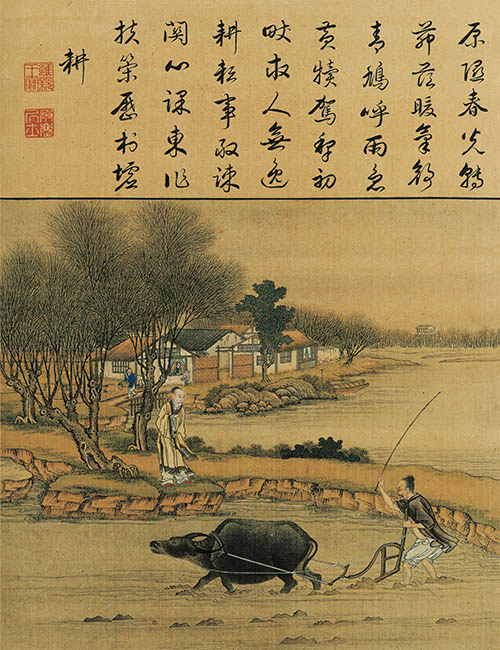 原隰春光轉
茆茨暖氣舒
青鳩呼雨急
黃犢駕犁初
畎畝人無逸
耕耘事敢疎
關心課東作
扶策歷村墟
耕
雍親王寶
破塵居士